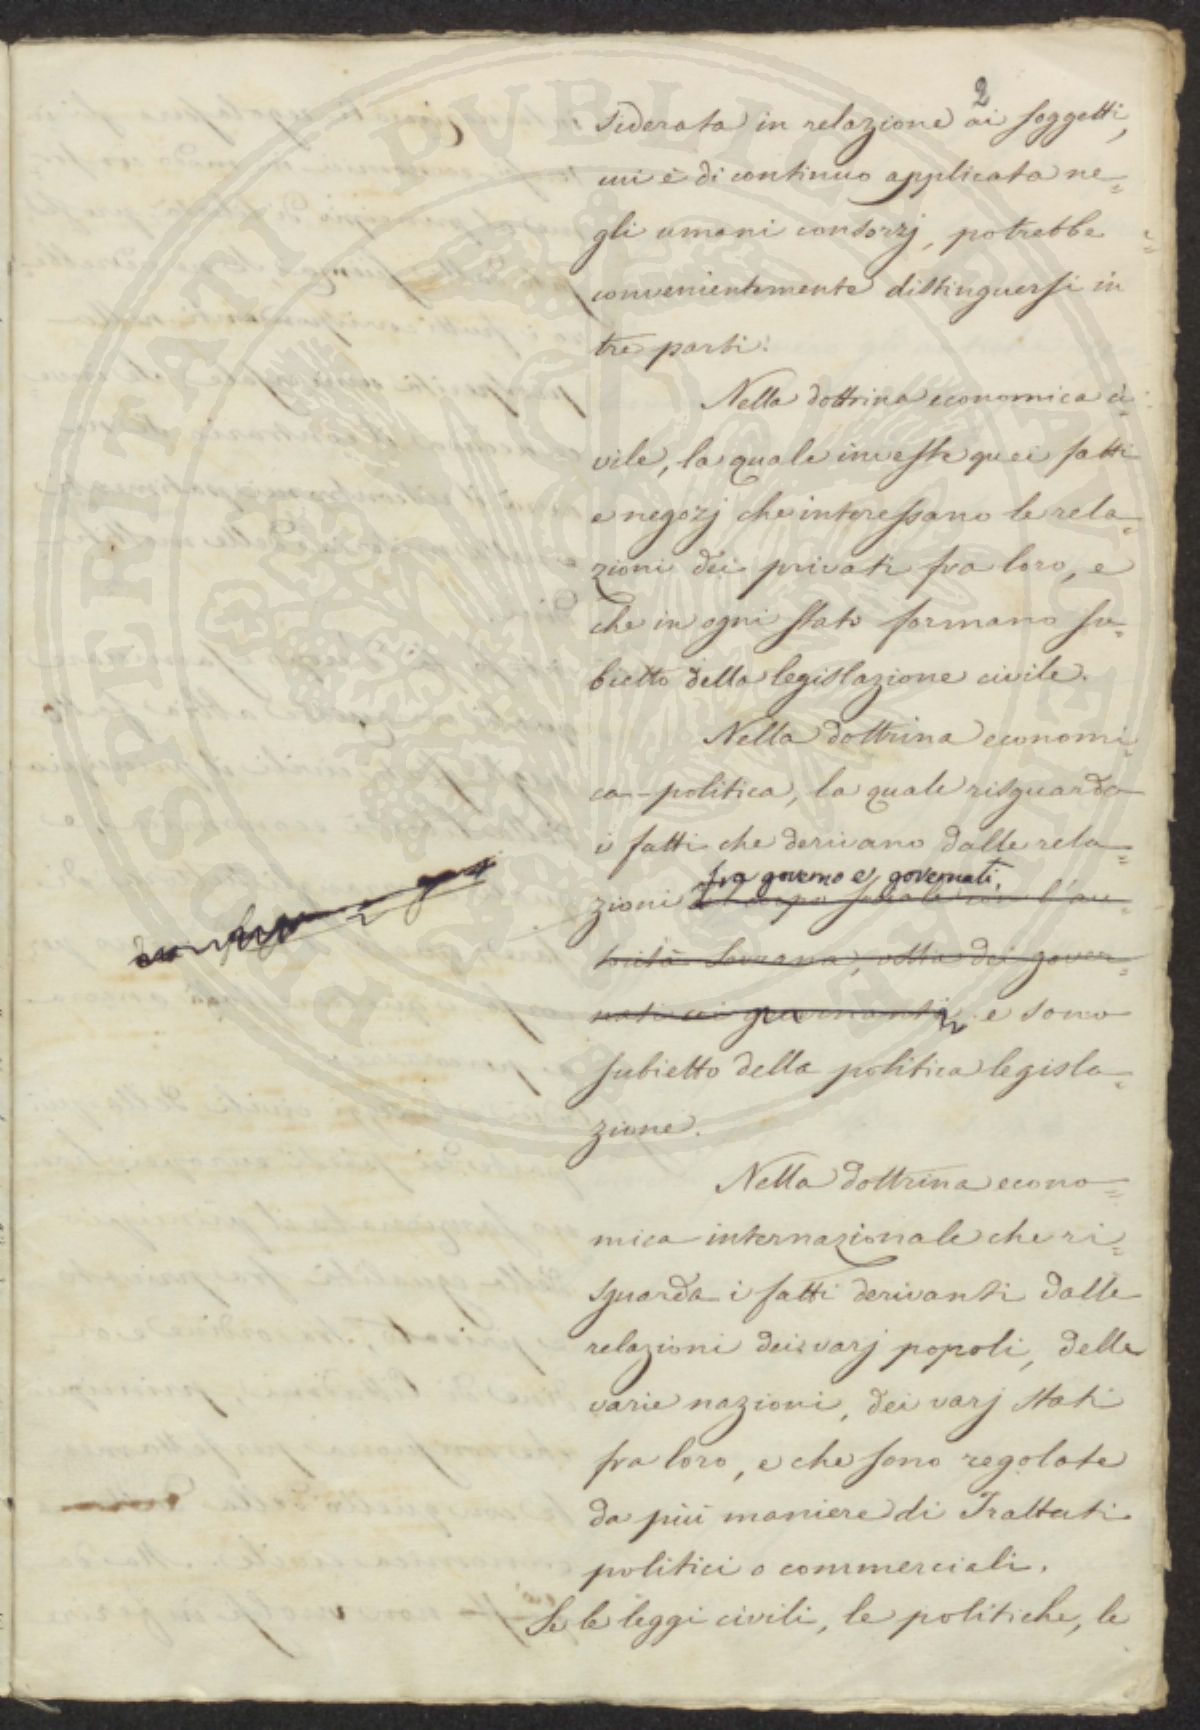 2
siderata in relazione ai soggetti,
cui è di continuo applicata ne=
gli umani consorzj, potrebbe
convenientemente distinguersi in
tre parti:
Nella dottrina economica ci=
vile, la quale investe quei fatti
e negozj che interessano le rela=
zioni dei privati fra loro, e
che in ogni stato formano su=
bietto della legislazione civile.
Nella dottrina economi=
ca-politica, la quale risguarda
i fatti che derivano dalle rela=
fra governo e governati,
zioni del corpo sociale con l'au=
torità sovrana, ossia dei gover=
nati coi governanti, e sono
subietto della politica legisla=
zione.
Nella dottrina econo=
mica-internazionale che ri=
sguarda i fatti derivanti dalle
relazioni dei varj popoli, delle
varie nazioni, dei varj stati
fra loro, e che sono regolate
da più maniere di Trattati
politici o commerciali.
Se le leggi civili, le politiche, le
PROSPERITATI PVBLICAE AVGENDAE